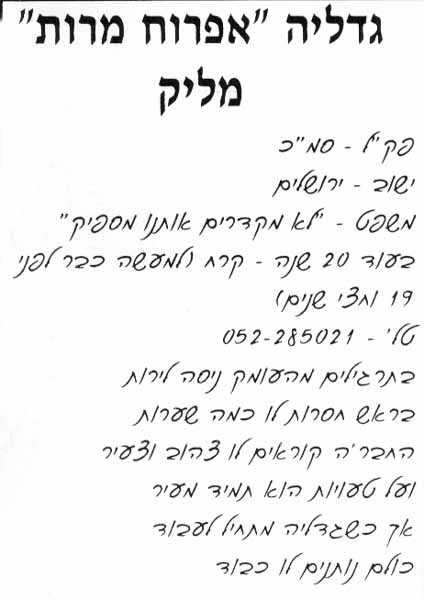 גדליה "אפרוח מרות"
מליק
פק"ל - סמ"כ
ישוב - ירושלים
משפט - "לא מקדרים אותנו מספיק"
בעוד 20 שנה - קרח (למעשה כבר לפני
19 וחצי שנים)
טל' - 052-285021
בתרגילים מהעומק ניסה לירות
בראש חסרות לו כמה שערות
החבר'ה קוראים לו צהוב וצעיר
ועל טעויות הוא תמיד מעיר
אך כשגדליה מתחיל לעבוד
כולם נותנים לו כבוד